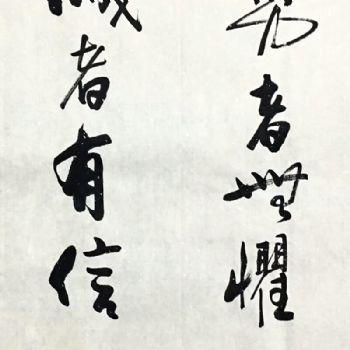 勇者無懼
誠者有信